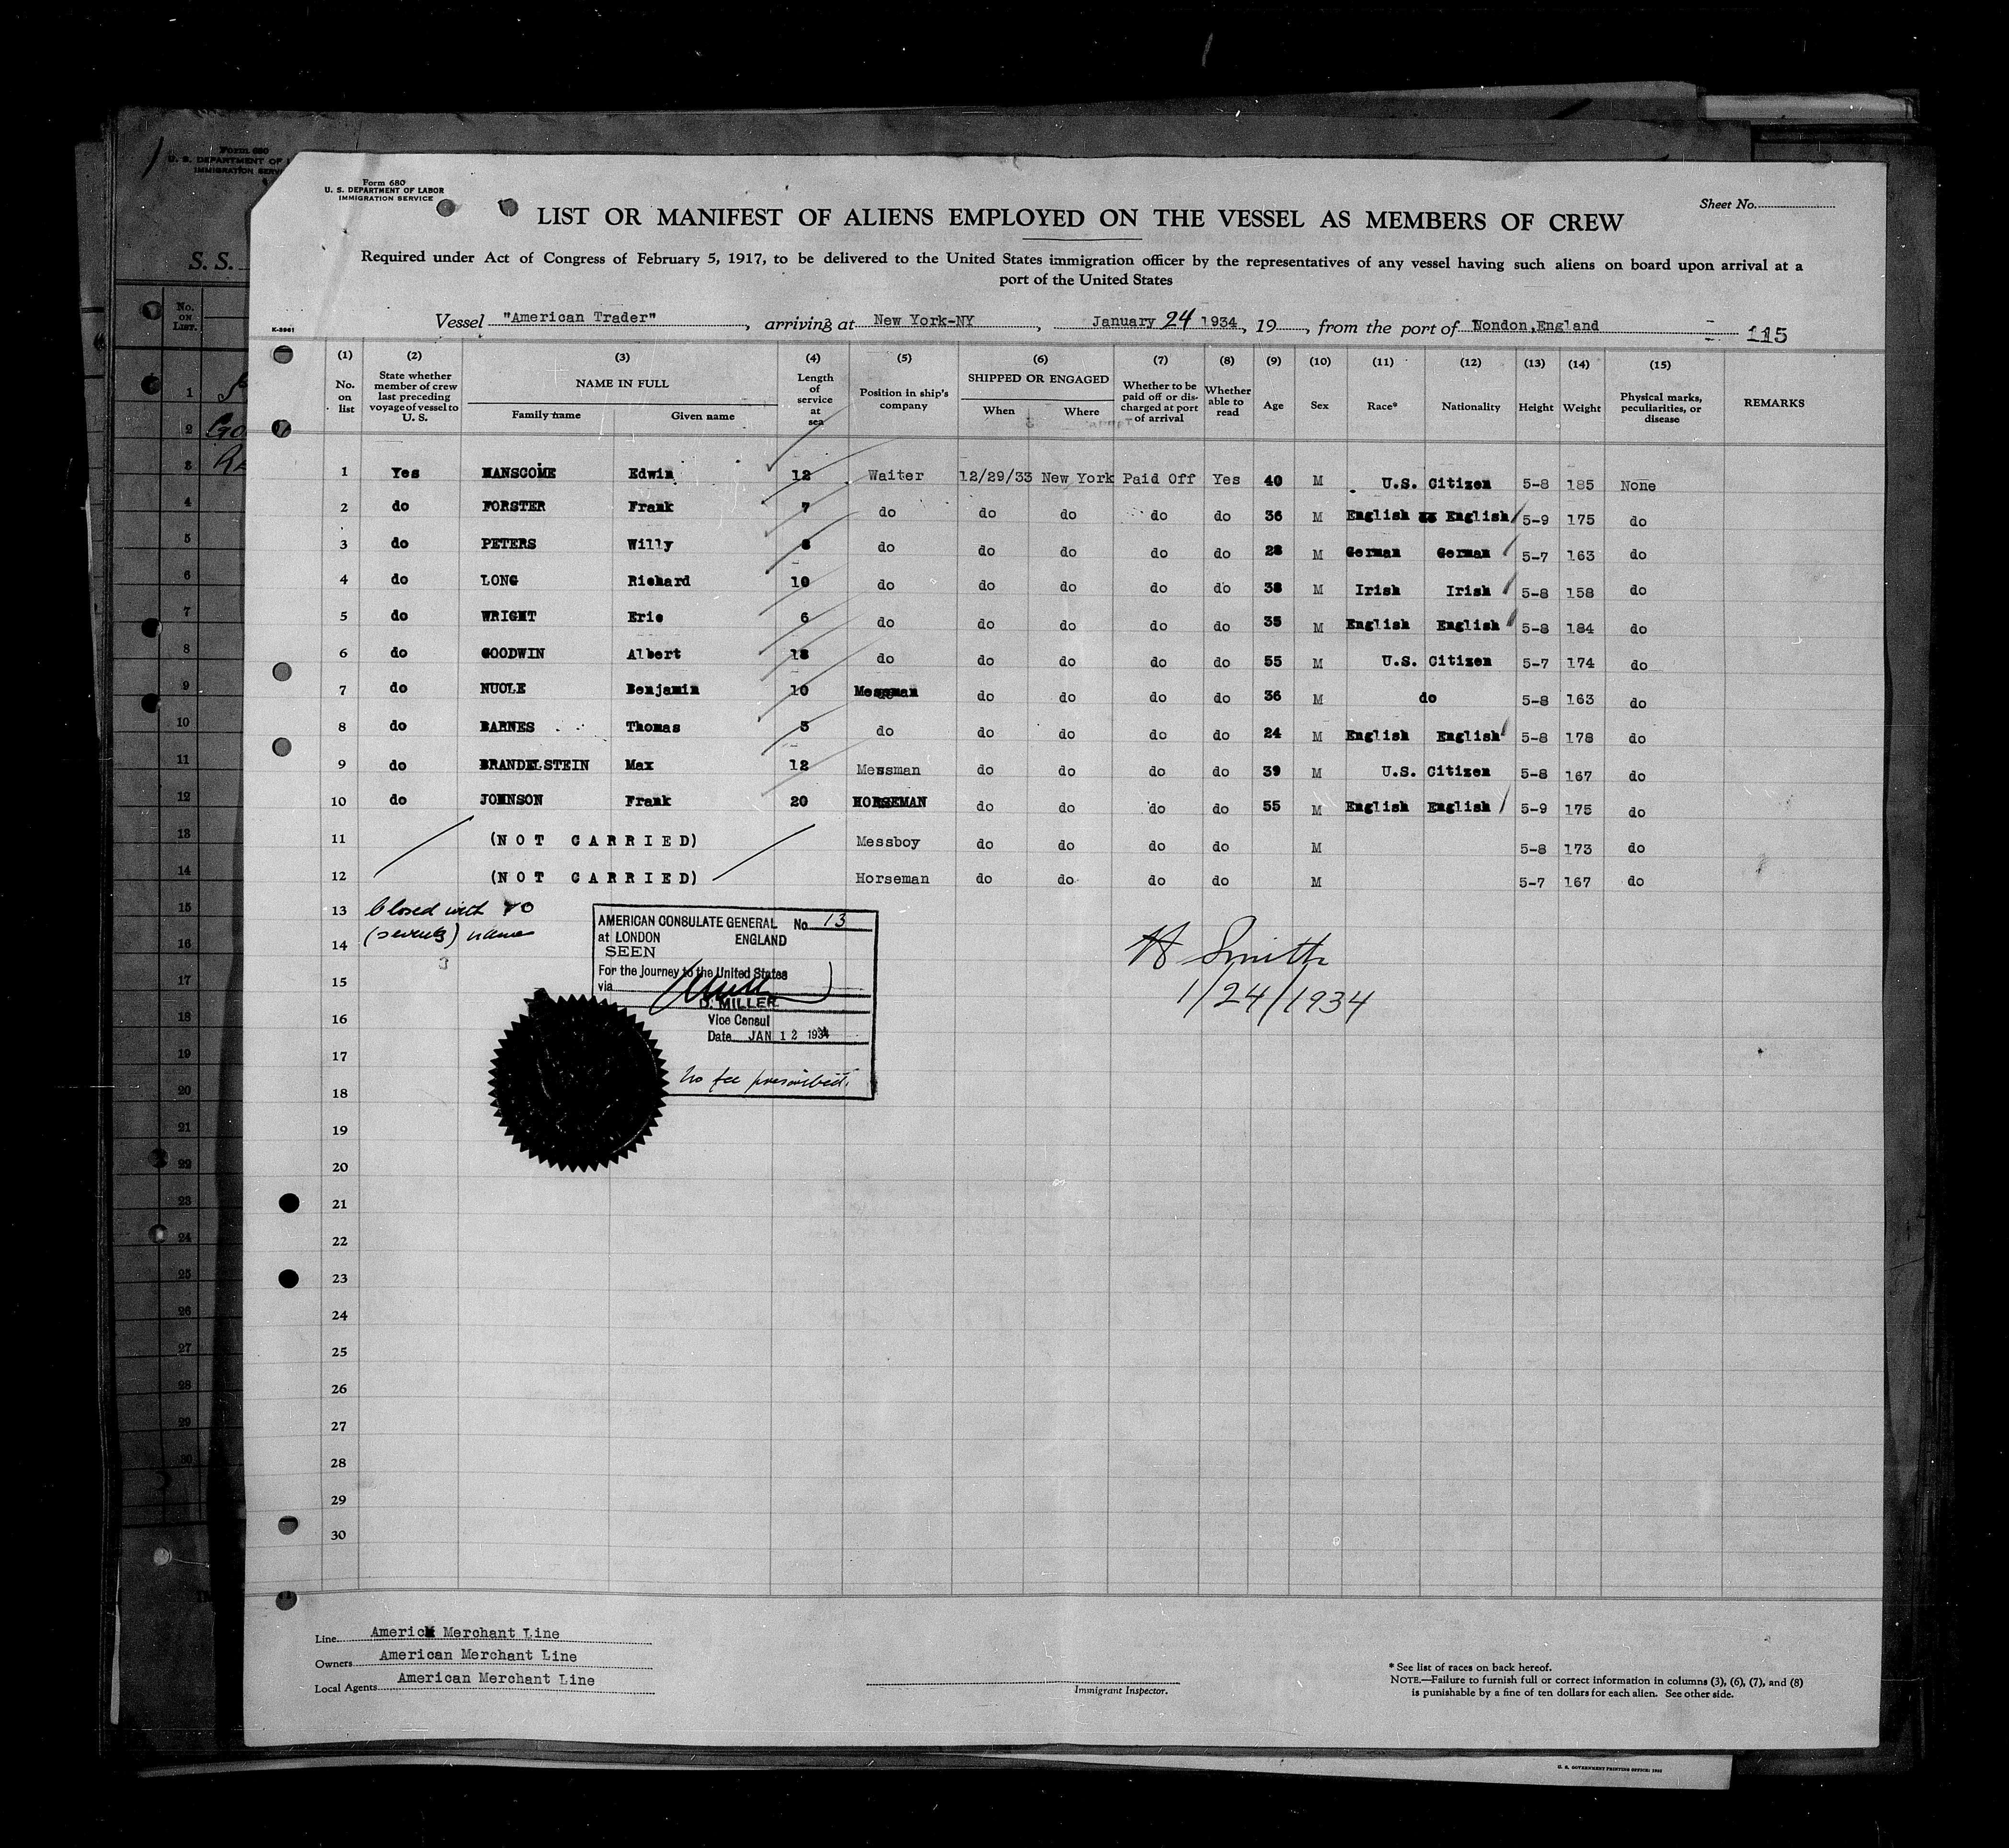 Form 680
U. S. DEPARTMENT OF LABOR
IMMIGRATION SERVICE
Sheet No.
LIST OR MANIFEST OF ALIENS EMPLOYED ON THE VESSEL AS MEMBERS OF CREW
Required under Act of Congress of February 5, 1917, to be delivered to the United States immigration officer by the representatives of any vessel having such aliens on board upon arrival at a
port of the United States
K-3961
Vessel "American Trader", arriving at New York-NY, January 24 1934, 19, from the port of Nondon,England 115
(1) (2) (3) (4) (5) (6) (7) (8) (9) (10) (11) (12) (13) (14) (15)
No. on list State whether member of crew last preceding voyage of vessel to U. S. NAME IN FULL Family name Given name Length of service at sea Position in ship's company SHIPPED OR ENGAGED When Where Whether to be paid off or discharged at port of arrival Whether able to read Age Sex Race* Nationality Height Weight Physical marks, peculiarities, or disease REMARKS
1 Yes MANSCOME Edwin 12 Waiter 12/29/33 New York Paid Off Yes 40 M U.S. Citizen 5-8 185 None
2 do FORSTER Frank 7 do do do do do 36 M English English 5-9 175 do
3 do PETERS Willy 8 do do do do do 28 M German German 5-7 163 do
4 do LONG Richard 10 do do do do do 38 M Irish Irish 5-8 158 do
5 do WRIGHT Eric 6 do do do do do 35 M English English 5-8 184 do
6 do GOODWIN Albert 18 do do do do do 55 M U.S. Citizen 5-7 174 do
7 do NUOLE Benjamin 10 Messman do do do do 36 M do 5-8 163 do
8 do BARNES Thomas 3 do do do do do 24 M English English 5-8 178 do
9 do BRANDELSTEIN Max 12 Messman do do do do 39 M U.S. Citizen 5-8 167 do
10 do JOHNSON Frank 20 HORSEMAN do do do do 55 M English English 5-9 175 do
11 (NOT CARRIED) Messboy do do do do M 5-8 173 do
12 (NOT CARRIED) Horseman do do do do M 5-7 167 do
13 Closed with 10
14 names
15
16
17
18
19
20
21
22
23
24
25
26
27
28
29
30
AMERICAN CONSULATE GENERAL No. 13
at LONDON ENGLAND
SEEN
For the Journey to the United States
via
D. MILLER
Vice Consul
Date JAN 12 1934
No fee prescribed.
H Smith
1/24/1934
Line American Merchant Line
Owners American Merchant Line
Local Agents American Merchant Line
Immigrant Inspector.
* See list of races on back hereof.
NOTE.—Failure to furnish full or correct information in columns (3), (6), (7), and (8)
is punishable by a fine of ten dollars for each alien. See other side.
Form 680
U. S. DEPARTMENT OF
IMMIGRATION SERV
S. S.
No. ON LIST.
1
2 Go
3
4
5
6
7
8
9
10
11
12
13
14
15
16
17
18
19
20
21
22
23
24
25
26
27
28
29
30
U. S. GOVERNMENT PRINTING OFFICE: